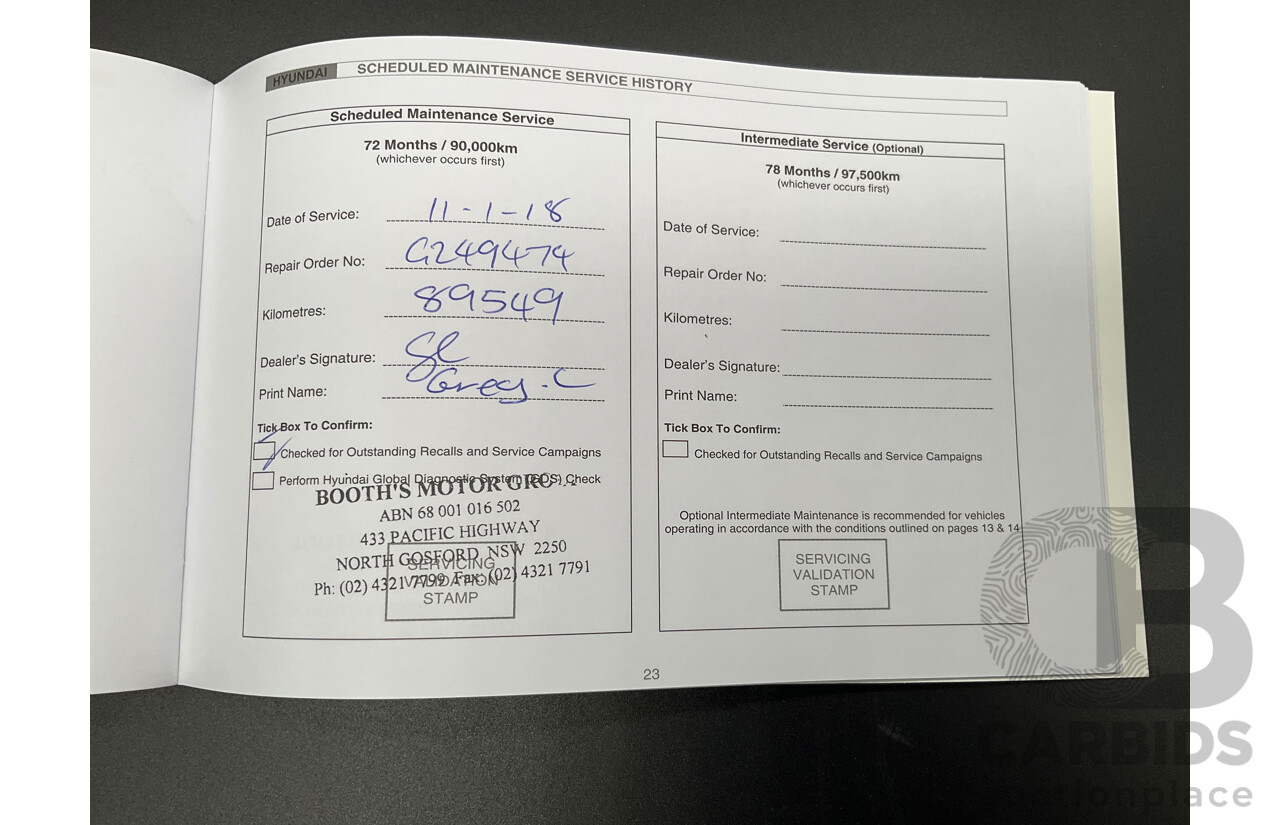 HYUNDAI SCHEDULED MAINTENANCE SERVICE HISTORY
Scheduled Maintenance Service
72 Months / 90,000km
(whichever occurs first)
Date of Service: 11-1-18
Repair Order No: G249474
Kilometres: 89549
Dealer's Signature:
Print Name: Greg.C
Tick Box To Confirm:
Checked for Outstanding Recalls and Service Campaigns
Perform Hyundai Global Diagnostic System (GDS) Check
BOOTH'S MOTOR GRO
ABN 68 001 016 502
433 PACIFIC HIGHWAY
NORTH GOSFORD, NSW 2250
Ph: (02) 4321 7799 Fax: (02) 4321 7791
SERVICING
VALIDATION
STAMP
Intermediate Service (Optional)
78 Months / 97,500km
(whichever occurs first)
Date of Service:
Repair Order No:
Kilometres:
Dealer's Signature:
Print Name:
Tick Box To Confirm:
Checked for Outstanding Recalls and Service Campaigns
Optional Intermediate Maintenance is recommended for vehicles
operating in accordance with the conditions outlined on pages 13 & 14
SERVICING
VALIDATION
STAMP
23
CARBIDS
auctionplace